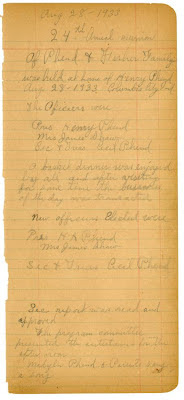 Aug 28 - 1933
24th Anual reunion
Of Phend & Fisher Family
was held at home of Henry Phend
Aug 28 - 1933. Columbia City Ind
The Officers were
Pres Henry Phend
Mrs James Shaw
Sec & Tres Cecil Phend
A basket dinner was enjoyed
by all and after
for some time the business
of the day was transacted
New officers Elected were
Pres H A Phend
Mrs James Shaw
Sec & Tres Cecil Phend
Sec report was read and
approved
The program committee
presented the entertainers for the
after noon
Phend & sang
a song